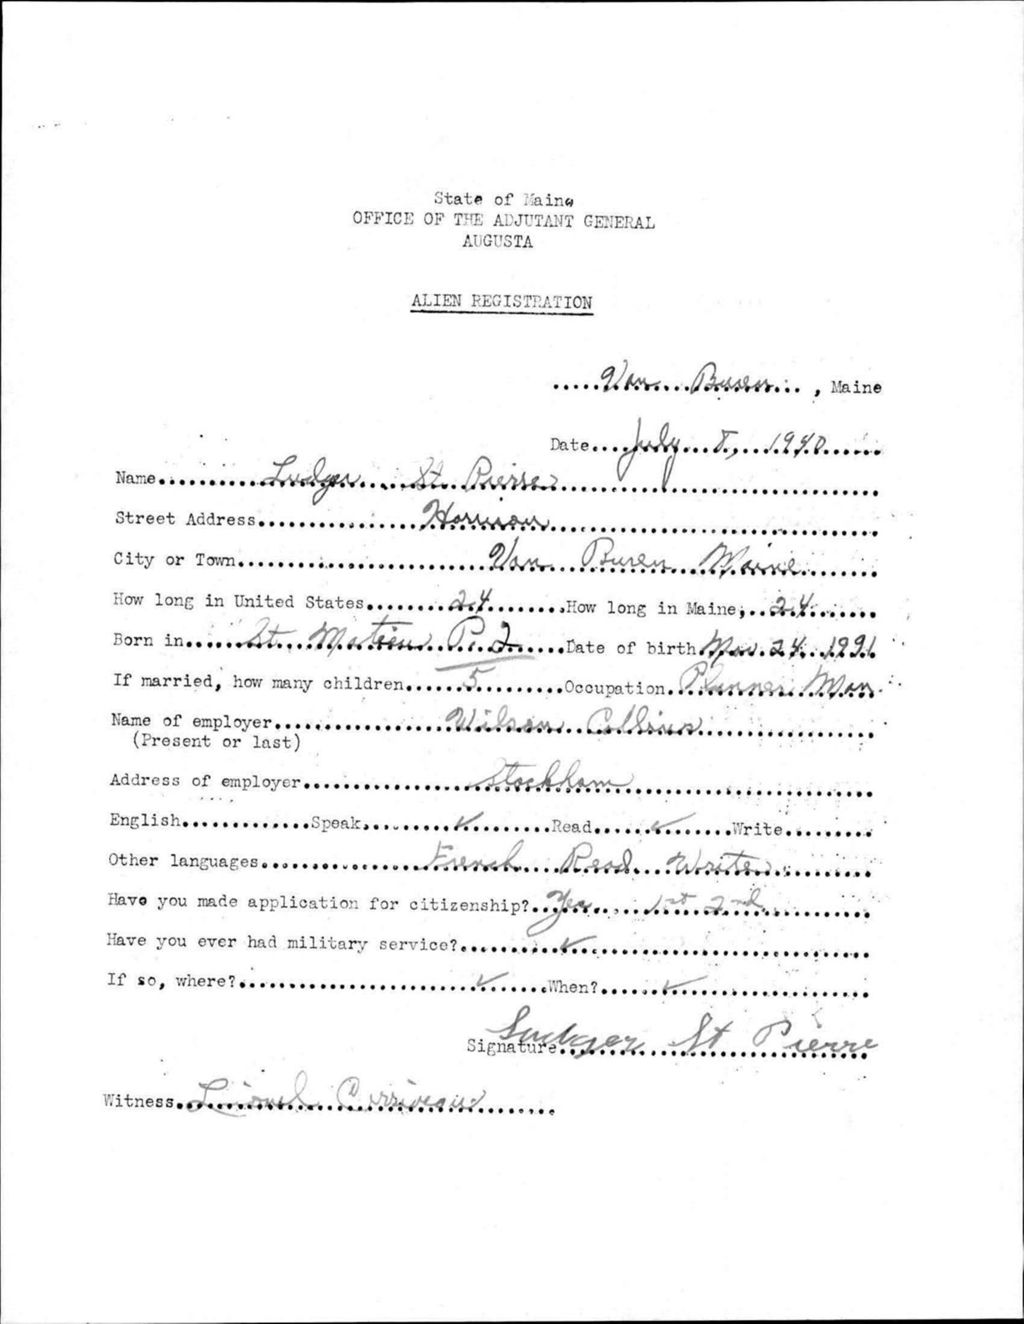 State of Maine
OFFICE OF THE ADJUTANT GENERAL
AUGUSTA
ALIEN REGISTRATION
Van Buren, Maine
Date July 8, 1940
Name Ludger St Pierre
Street Address
City or Town Van Buren Maine
How long in United States 24 How long in Maine 24
Born in St. Matieu P. Q Date of birth 24
If married, how many children 5 Occupation Planner Man
Name of employer Wilson Collins
(Present or last)
Address of employer Stockham
English Speak ✓ Read ✓ Write
Other languages French Read Write
Have you made application for citizenship? Yes 1st 2nd
Have you ever had military service? ✓
If so, where? ✓ When? ✓
Signature Ludger St Pierre
Witness Lionel Corriveau